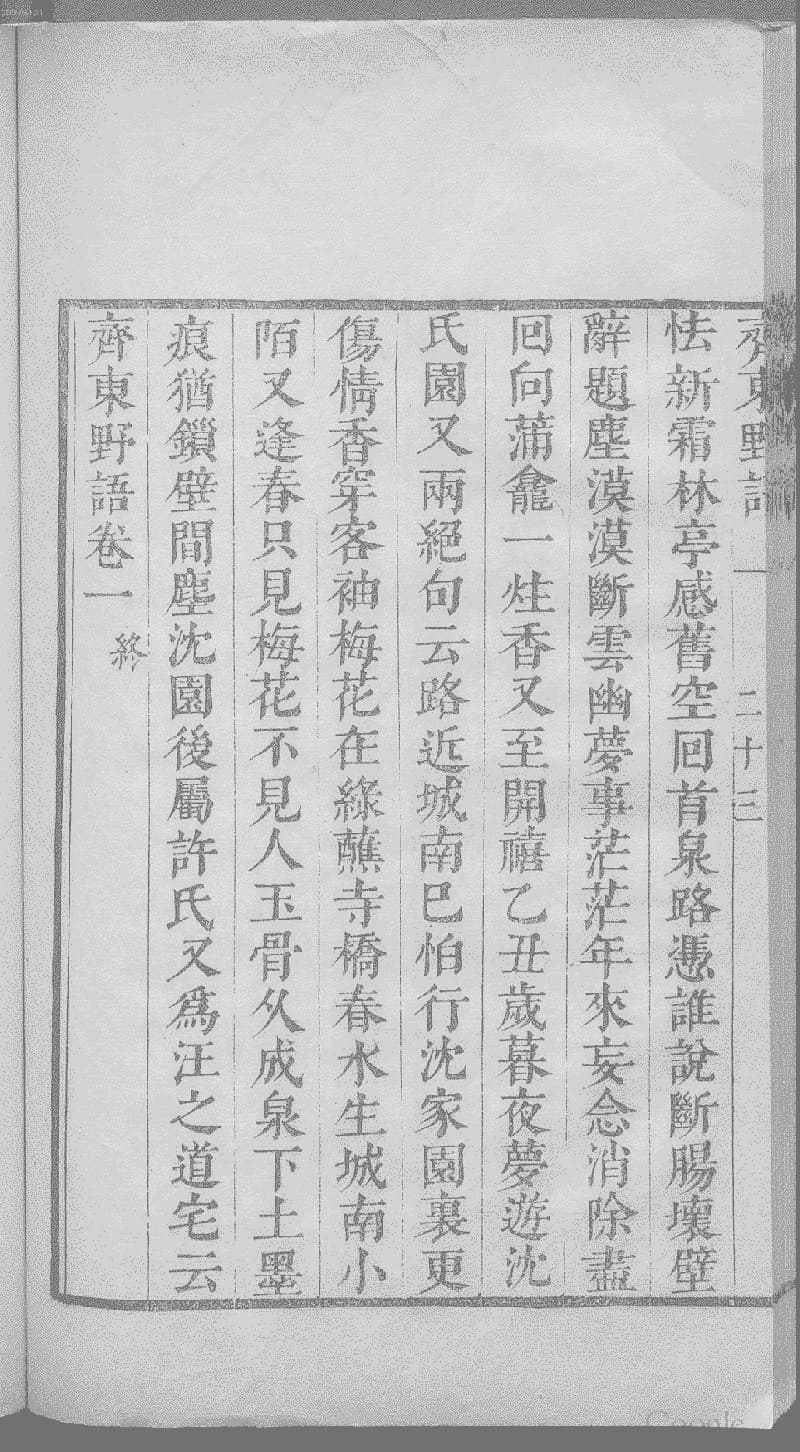 齊東野語 一 二十三
怯新霜林亭感舊空回首泉路憑誰說斷腸壞壁
辭題塵漠漠斷雲幽夢事茫茫年來妄念消除盡
回向蒲龕一炷香又至開禧乙丑歲暮夜夢遊沈
氏園又兩絕句云路近城南巳怕行沈家園裏更
傷情香穿客袖梅花在綠蘸寺橋春水生城南小
陌又逢春只見梅花不見人玉骨乆成泉下土墨
痕猶鎖壁間塵沈園後屬許氏又爲汪之道宅云
齊東野語卷一 終
Google